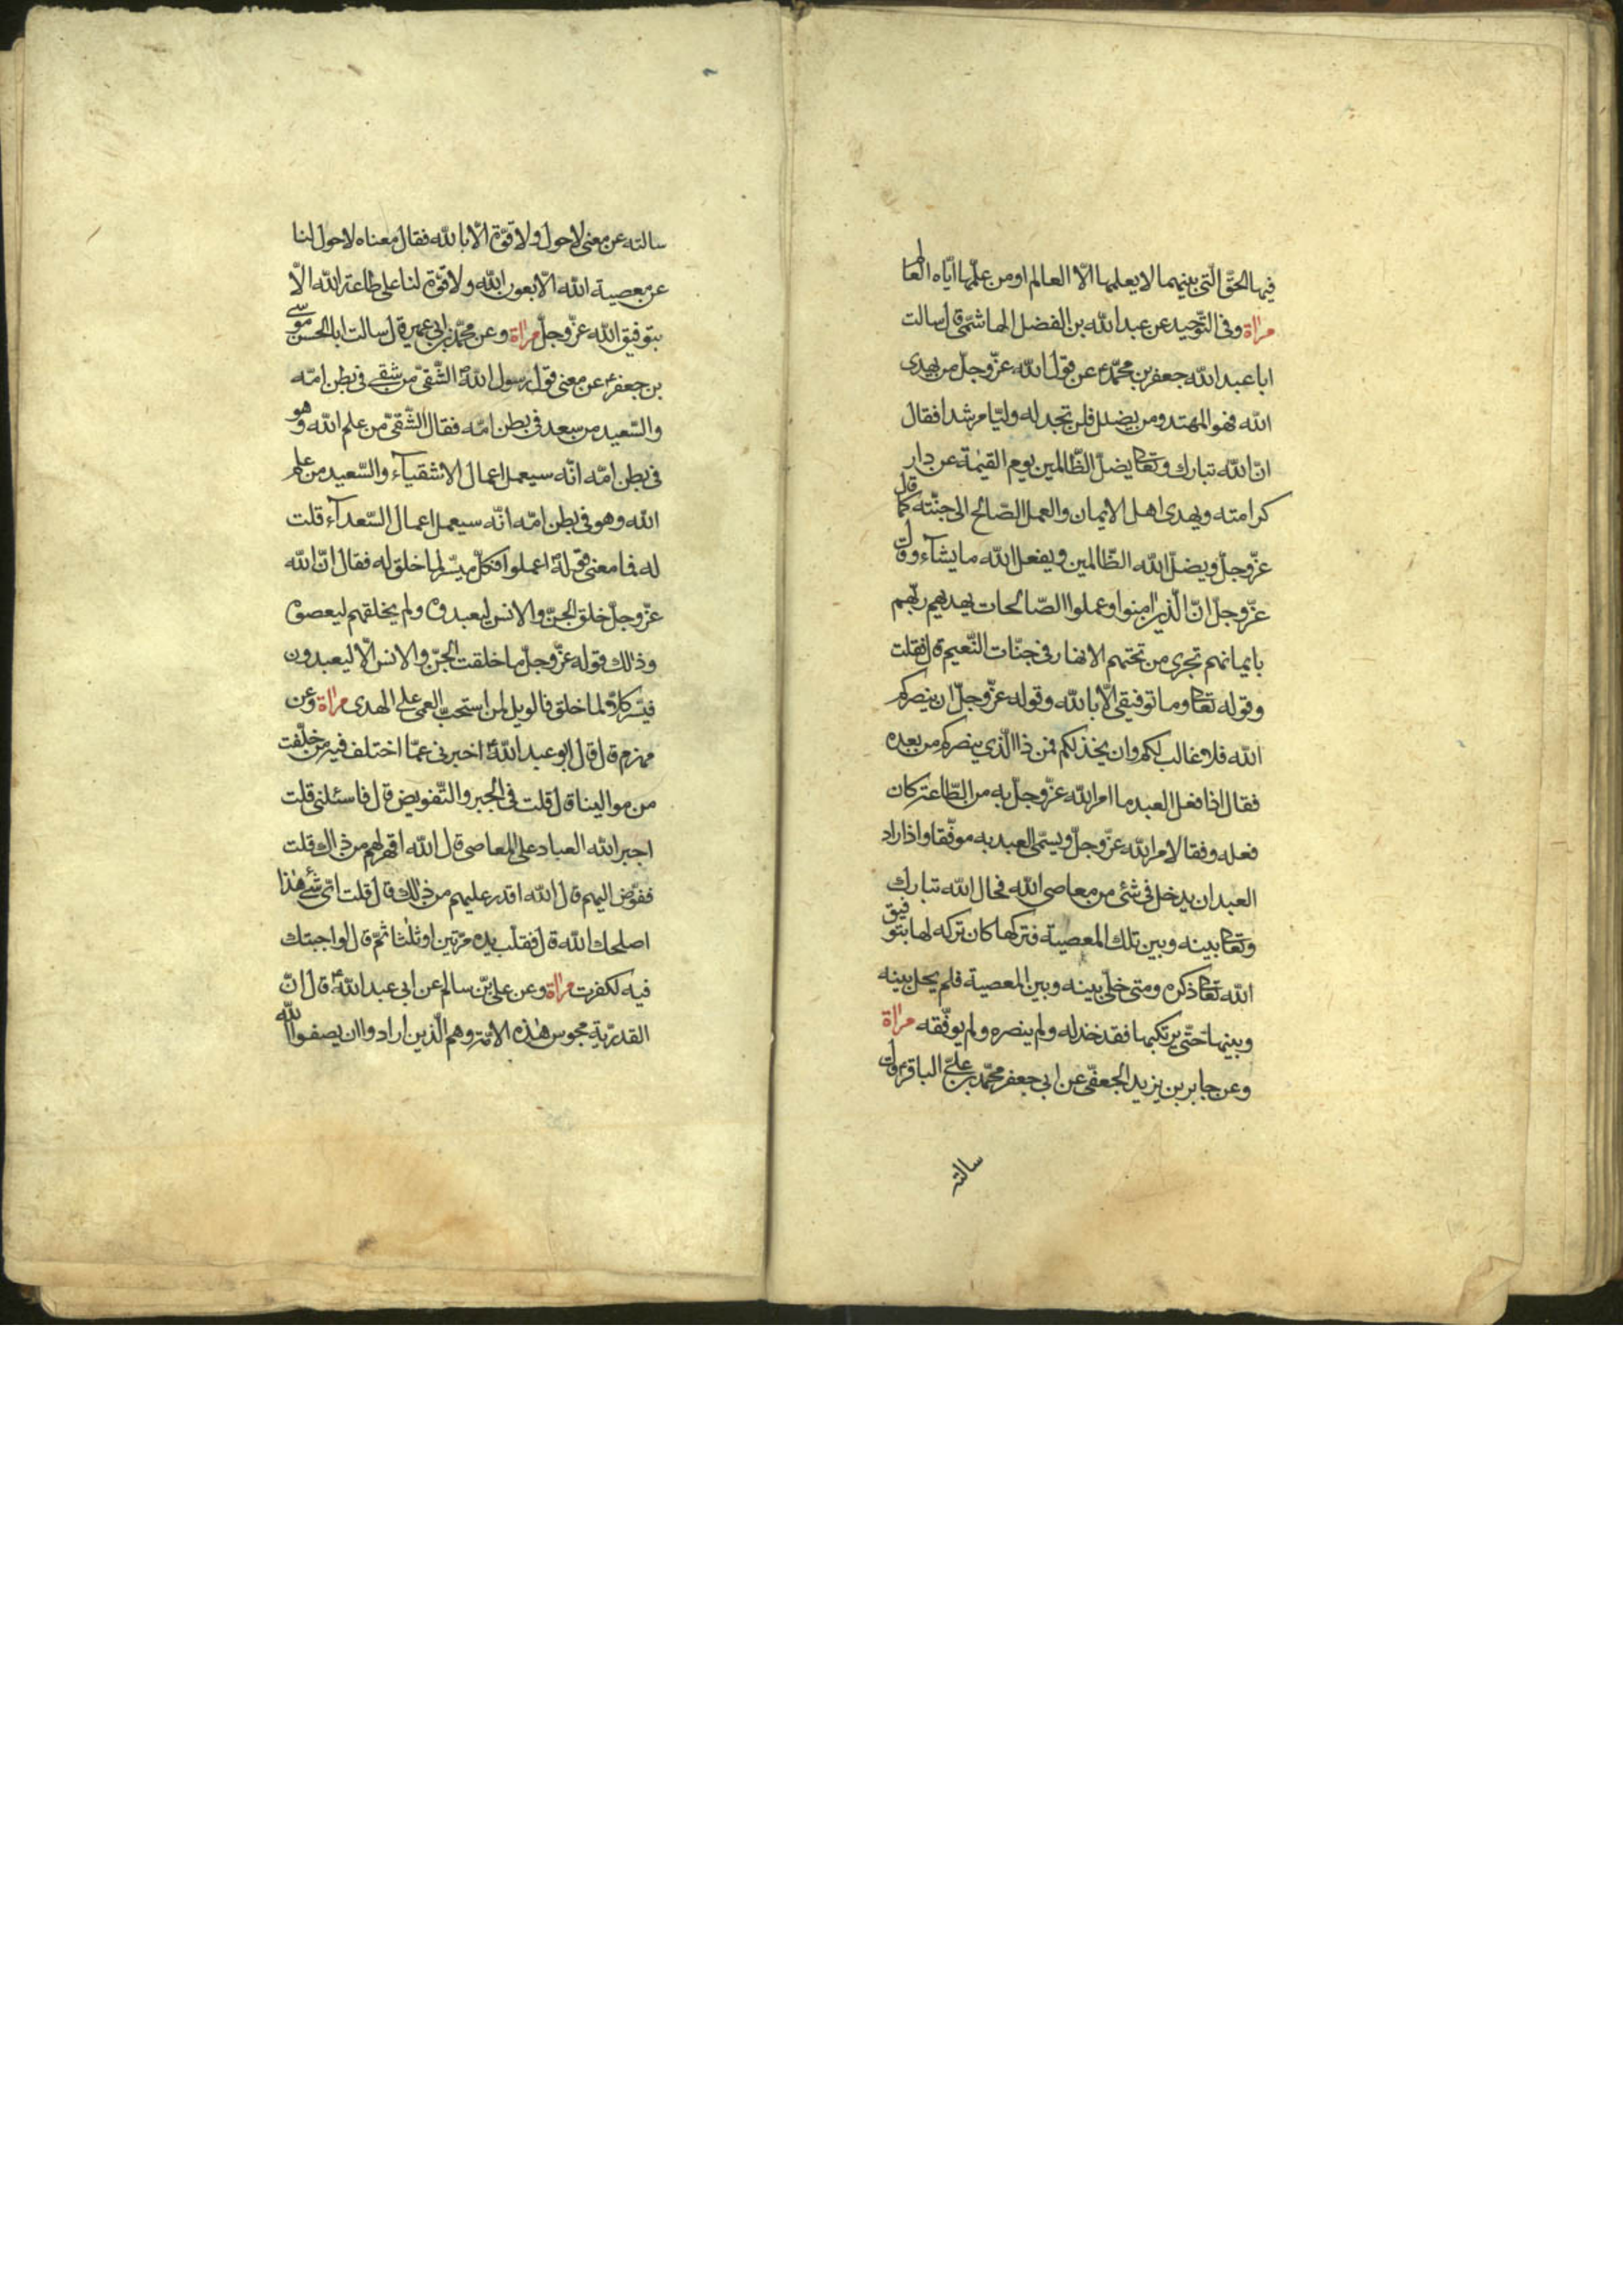 فيها الحقّ الّتي بينهما لا يعلمها الّا العالم او من علّمها ايّاه العالم
مراة وفى التّوحيد عن عبد الله بن الفضل الهاشمّى قال سالت
ابا عبد الله جعفر بن محمّد ع عن قول الله عزّ وجلّ من يهدى
الله فهو المهتد ومن يضلل فلن تجد له وليّا مرشدا فقال
انّ الله تبارك وتعا يضلّ الظّالمين يوم القيٰمة عن دار
كرامته ويهدى اهل الايمان والعمل الصّالح الى جنّته كما قال
عزّ وجلّ ويضلّ الله الظّالمين ويفعل الله ما يشآء وقال
عزّ وجلّ انّ الّذين امنوا وعملوا الصّالحات يهديهم ربّهم
بايمانهم تجرى من تحتهم الانهار فى جنّات النّعيم قال فقلت
وقوله تعا وما توفيقى الّا بالله وقوله عزّ وجلّ ان ينصركم
الله فلا غالب لكم وان يخذلكم فمن ذا الّذي ينصركم من بعده
فقال اذا فعل العبد ما امر الله عزّ وجلّ به من الطّاعة كان
فعله وفقا لامر الله عزّ وجلّ ويسمّى العبد به موفّقا واذا راد
العبد ان يدخل فى شئ من معاصى الله فحال الله تبارك
وتعا بينه وبين تلك المعصية فتركها كان تركه لها بتوفيق
الله تعا ذكره ومتى خلّى بينه وبين المعصية فلم يحل بينه
وبينها حتّى يرتكبها فقد خذله ولم ينصره ولم يوفّقه مراة
وعن جابر بن يزيد الجعفّى عن ابى جعفر محمّد بن علىّ الباقر ع قال
سالته
سالته عن معنى لا حول ولا قوّة الّا بالله فقال معناه لا حول لنا
عن معصية الله الّا بعون الله ولا قوّة لنا على طاعة الله الّا
بتوفيق الله عزّ وجلّ مراة وعن محمّد بن ابى عمير قال سالت ابا الحسن موسى
بن جعفر ع عن معنى قول رسول الله ص الشّقىّ من شقى فى بطن امّه
والسّعيد من سعد فى بطن امّه فقال الشّقىّ من علم الله وهو
فى بطن امّه انّه سيعمل اعمال الاشقيآء والسّعيد من علم
الله وهو فى بطن امّه انّه سيعمل اعمال السّعدآء قلت
له فما معنى قوله ص اعملوا فكلّ ميسّر لما خلق له فقال انّ الله
عزّ وجلّ خلق الجنّ والانس ليعبدوه ولم يخلقهم ليعصوه
وذلك قوله عزّ وجلّ ما خلقت الجنّ والانس الّا ليعبدون
فيسّر كلّا لما خلق فالويل لمن استحبّ العمى على الهدى مراة وعن
مهزم قال قال ابو عبد الله ع اخبرنى عمّا اختلف فيه من خلّفت
من موالينا قال قلت فى الجبر والتّفويض قال فاسئلنى قلت
اجبر الله العباد على المعاصى قال الله اقهر لهم من ذلك قلت
ففوّض اليهم قال الله اقدر عليهم من ذلك قال قلت اىّ شئ هذا
اصلحك الله قال فقلب يده مرّتين او ثلٰثا ثمّ قال لو اجبتك
فيه لكفرت مراة وعن علىّ بن سالم عن ابى عبد الله ع قال انّ
القدريّة مجوس هٰذه الامّة وهم الّذين ارادوا ان يصفوا الله